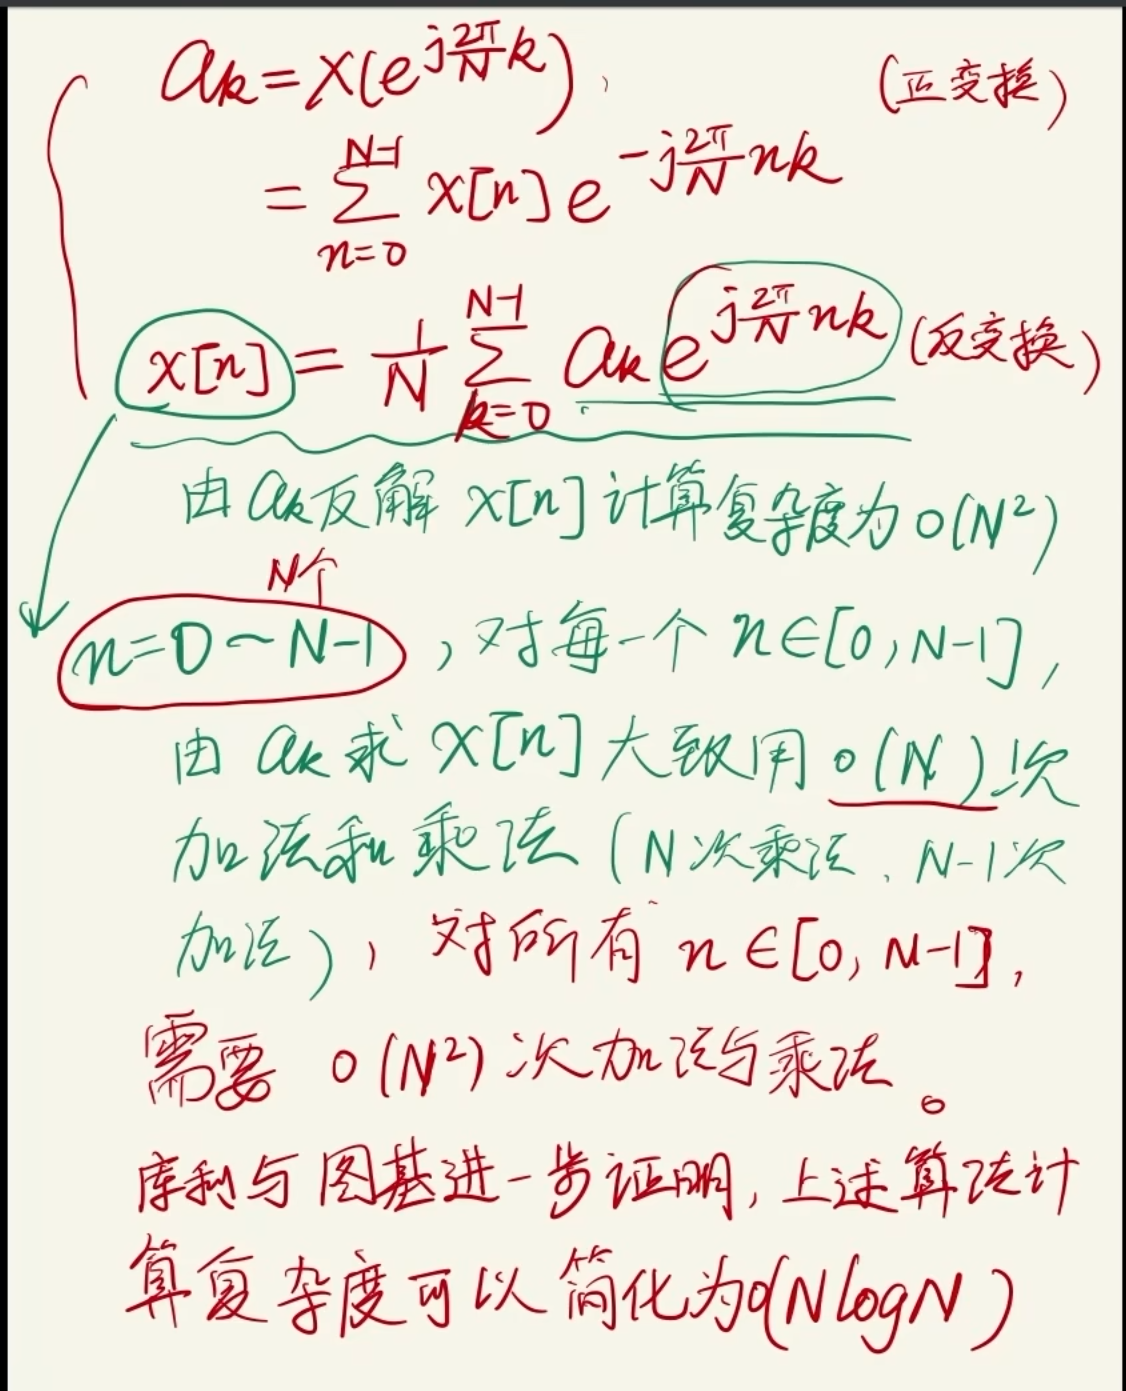 a_k = X(e^{j\frac{2π}{N}k}) (正变换)
= \sum_{n=0}^{N-1} x[n] e^{-j\frac{2π}{N}nk}
x[n] = \frac{1}{N} \sum_{k=0}^{N-1} a_k e^{j\frac{2π}{N}nk} (反变换)
由 a_k 反解 x[n] 计算复杂度为 O(N²)
N个
n=0~N-1,对每一个 n∈[0,N-1],
由 a_k 求 x[n] 大致用 O(N)次
加法和乘法(N次乘法、N-1次
加法),对所有 n∈[0,N-1],
需要 O(N²)次加法与乘法。
库利与图基进一步证明,上述算法计
算复杂度可以简化为O(NlogN)